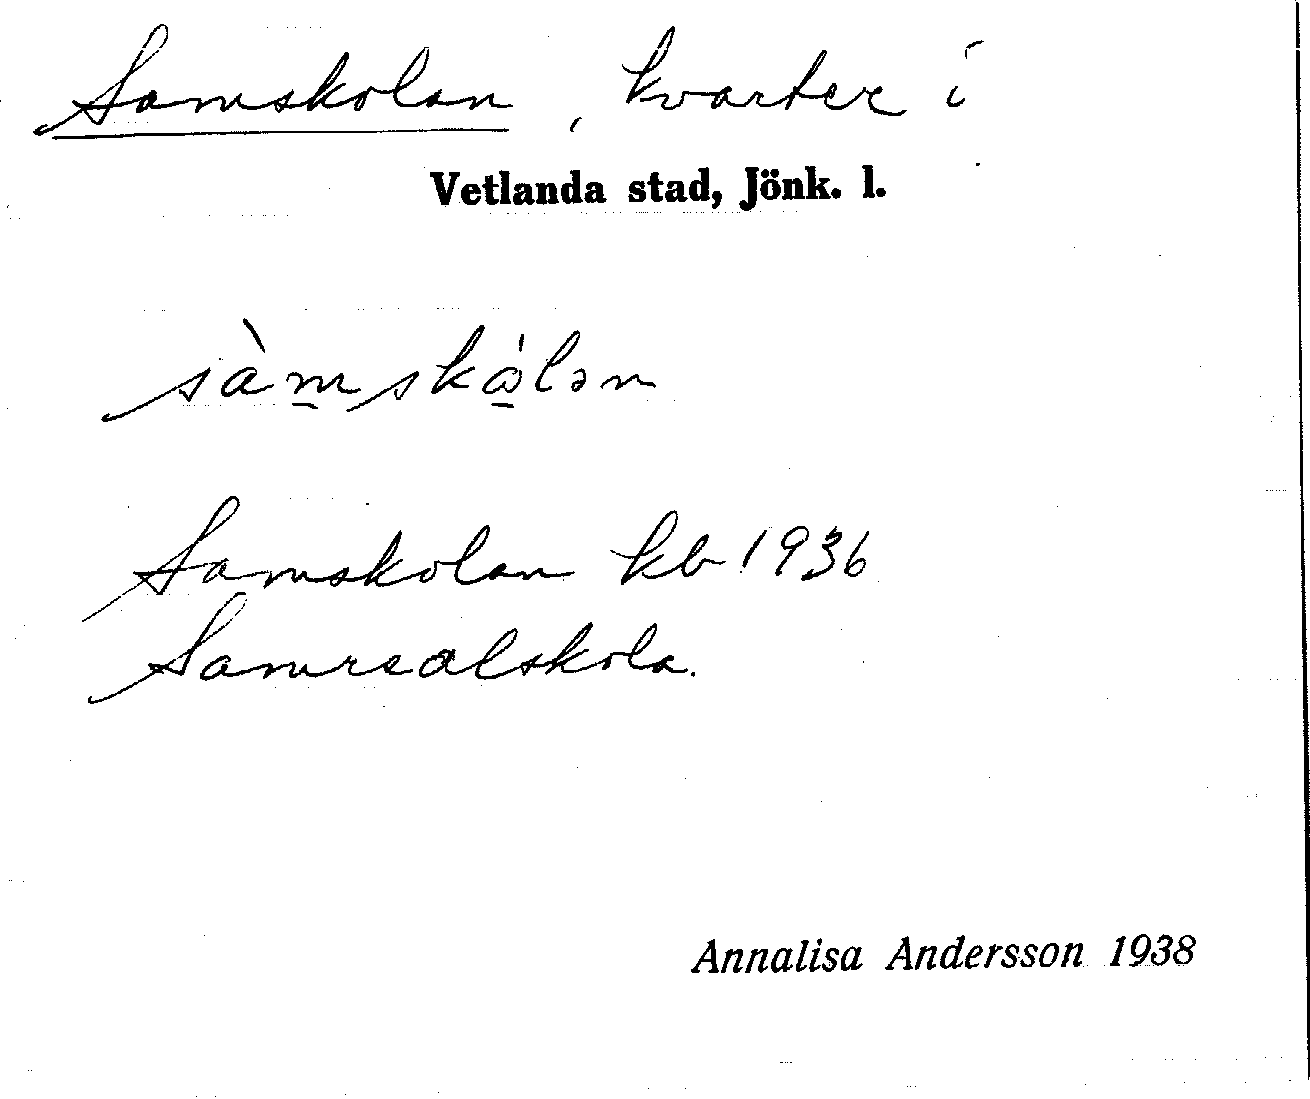 Samskolan, kvarter i
Vetlanda stad, Jönk. l.
sàm̲skώ̲lən
Samskolan kb 1936
Samrealskola.
Annalisa Andersson 1938